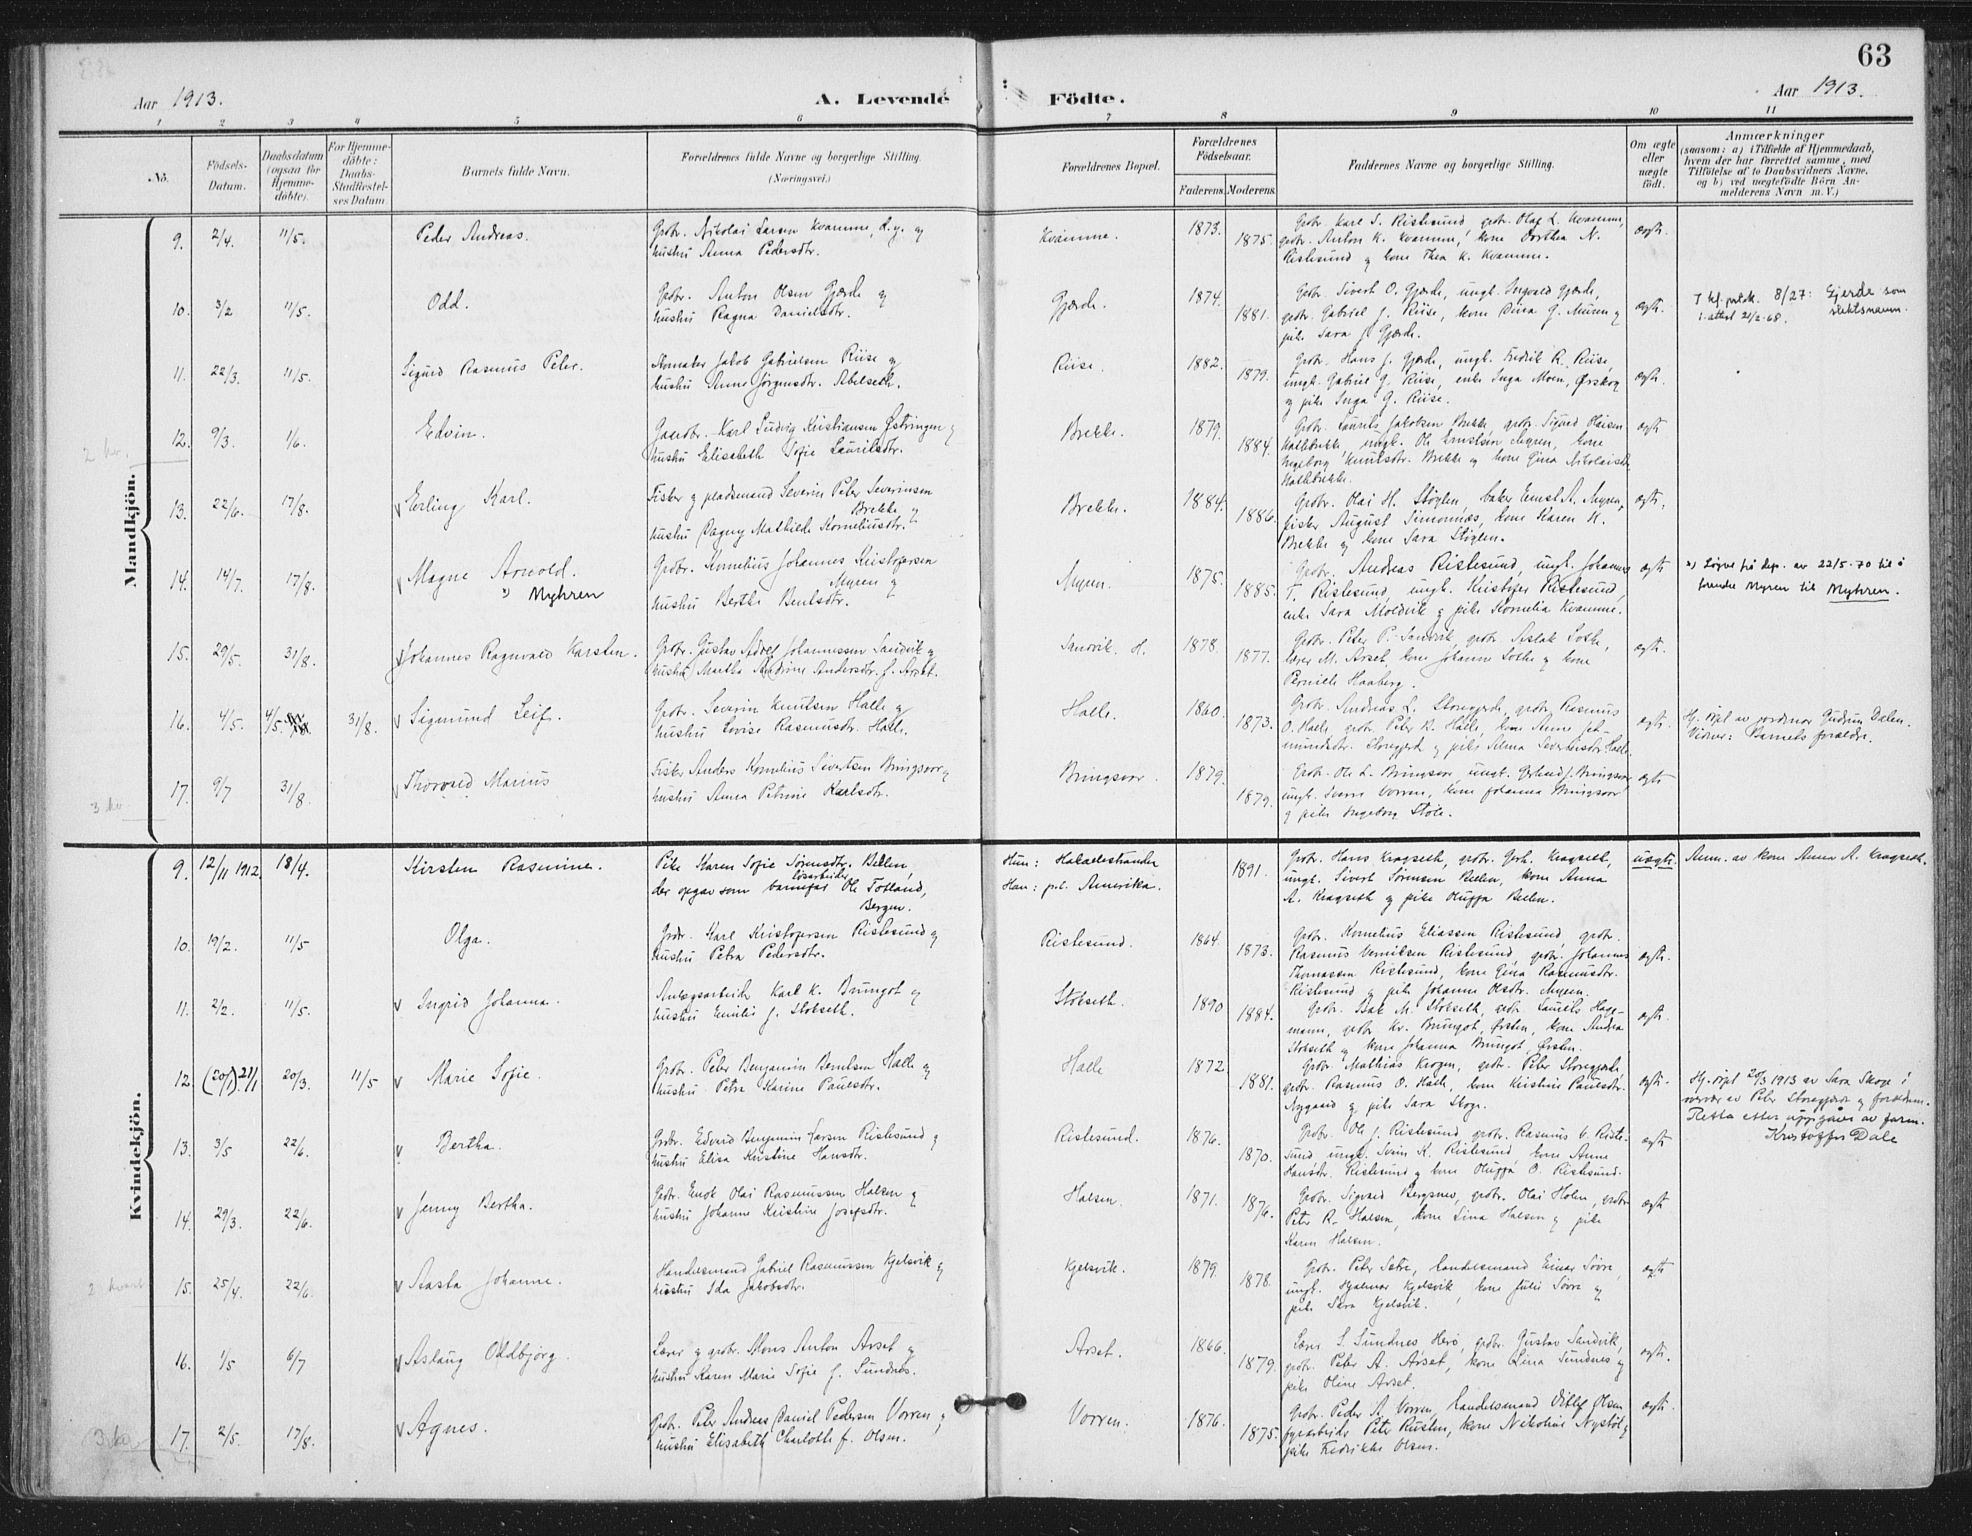 63
Aar 1913.
A. Levende
Födte.
Aar 1913.
1 2 3 4 5 6 7 8 9 10 11
No.
Födsels-
Datum.
Daabsdatum
(ogsaa for
Hjemme-
döbte).
For Hjemme-
döbte:
Daabs-
Stadfæstel-
ses Datum.
Barnets fulde Navn.
Forældrenes fulde Navne og borgerlige Stilling.
(Næringsvei.)
Forældrenes Bopæl.
Forældrenes
Födselsaar.
Faderens. Moderens.
Faddernes Navne og borgerlige Stilling.
Om ægte
eller
uægte
født.
Anmærkninger
(saasom: a) i Tilfælde af Hjemmedaab,
hvem der har forrettet samme, med
Tilföielse af to Daabsvidners Navne,
og b) ved uægtefödte Börn An-
melderens Navn m. V.)
Mandkjön.
9. 2/4. 11/5. Peder Andreas.
Grbr. Nikolai Larsen Kvamme, d.y. og
hustru Anna Pedersdtr.
Kvamme. 1873. 1875.
Grbr. Karl S. Ristesund, grbr. Olag L. Kvamme,
grbr. Anton K. Kvamme, kone Dorthea N.
Ristesund og kone Thea K. Kvamme.
ægte.
10. 3/2 11/5. Odd.
Grbr. Anton Olsen Gjerde og
hustru Ragna Danielsdtr.
Gjerde. 1874. 1881.
Grbr. Sivert O. Gjerde, ungk. Ingvald Gjerde,
grbr. Gabriel J. Riise, kone Dina G. Muren og
pike Sara J. Gjerde.
ægte.
8/27: Gjerde som
slektsnavn.
i attest 21/2-68.
11. 22/3. 11/5. Sigurd Rasmus Peter.
Skomaker Jakob Gabrielsen Riise og
hustru Anne Jörgensdtr. Abelseth.
Riise. 1882. 1879.
Grbr. Hans J. Gjerde, ungk. Fredrik R. Riise,
ungk. Gabriel G. Riise, enke Inga Moen, Ørskog
og pike Inga G. Riise.
ægte.
2 kv.
12. 9/3. 1/6. Edvin.
Karl Ludvig Kristiansen Østringen og
hustru Elisabeth Sofie Lauritsdtr.
Brekke. 1879. 1884.
Grbr. Laurits Jakobsen Brekke, grbr. Sigurd Olaisen
Hallebrekke, ungk. Ole Ernstsen Myren, kone
Ingeborg Knutsdtr. Brekke og kone Gina Nikolaisdtr.
Hallebrekke.
ægte
13. 22/6. 17/8. Erling Karl.
Fisker og pladsmand Severin Peter Severinsen
Brekke og
hustru Dagny Mathilde Korneliusdtr.
Brekke. 1884. 1886.
Grbr. Olai H. Støylen, baker Ernst A. Myren,
fisker August Simonnæs, kone Karen K.
Brekke og kone Sara Støylen.
ægte.
14. 14/7. 17/8. Magne Arnold.
x) Myhren
Grbr. Kornelius Johannes Kristofersen
Myren og
hustru Berthe Bentsdtr.
Myren. 1875. 1885.
Grbr. Andreas Ristesund, ungk. Johannes
T. Ristesund, ungk. Kristofer Ristesund,
enke Sara Moldvik og pike Kornelia Kvamme.
ægte
x) Løyve frå dep. av 22/5-70 til å
brende Myren til Myhren.
15. 29/5. 31/8. Johannes Ragnvald Karsten.
Grbr. Gustav Adolf Johannessen Sandvik og
hustru Martha Andrine Andersdtr. f. Arset.
Sandvik. H. 1878. 1877.
Grbr. Peter P. Sandvik, grbr. Aslak Tofte,
lærer M. Arset, kone Johanne Tofte og kone
Pernille Haaberg.
ægte.
16. 4/5. 4/5. 31/8. Sigmund Leif.
Grbr. Severin Knutsen Halle og
hustru Lovise Rasmusdtr. Halle.
Halle. 1860. 1873.
Grbr. Andreas L. Storegjerde, grbr. Rasmus
O. Halle, grbr. Peter R. Halle, kone Anne Jet-
mundsdtr. Storegjerd og pike Selma Severinsdtr. Halle.
ægte.
Hj. döpt av jordmor Gudrun Dalen.
Vidner: Barnets forældre.
3 kv
17. 9/7 31/8. Thorvald Marius
Fisker Anders Kornelius Sivertsen Bringsvor og
hustru Anna Petrine Karlsdtr.
Bringsvor. 1879. 1879.
Grbr. Ole L. Bringsvor, ungk. Gerhard J. Bringsvor
ungk. Sverre Vorren, kone Johanna Bringsvor
og pike Ingeborg Støle.
ægte
Kvindekjön.
9. 12/11 1912. 18/4. Kirsten Rasmine.
Pike Karen Sofie Sørensdtr. Bellen,
der opgav som barnefar lösarbeider Ole Totland,
Bergen.
Hun: Hakallestranden
Han: p.t. Amerika.
1891.
Grbr. Hans Kragseth, grbr. Gerh. Kragseth,
ungk. Sivert Sørensen Bellen, kone Anna
A. Kragseth og pike Huppa Bellen.
uægte.
Anm. av kone Anna A. Kragseth.
10. 19/2. 11/5 Olga.
Grbr. Karl Kristofersen Ristesund og
hustru Petra Pedersdtr.
Ristesund. 1864. 1873.
Grbr. Kornelius Eliassen Ristesund, grbr.
Rasmus Ristesund, grbr. Johannes
Thomassen Ristesund, kone Gina Rasmusdtr.
Ristesund og pike Johanne Olsdtr. Myren.
ægte.
11. 2/2. 11/5. Ingrid Johanna.
Anlægsarbeider Karl K. Brungot og
hustru Emilie J. Stokseth.
Stokseth. 1890 1884.
Grbr. Isak M. Stokseth, grbr. Laurits Hage-
mann, grbr. Kr. Brungot, Ørsten, kone Andrea
Stokseth og kone Johanna Brungot, Ørsten.
ægte.
12. (20/1). 21/1 20/3. 11/5 Marie Sofie.
Grbr. Peter Benjamin Berntsen Halle og
hustru Petra Karine Paulsdtr.
Halle 1872. 1881.
Grbr. Mathias Krogen, grbr. Peter Storegjerde,
grbr. Rasmus O. Halle, kone Kristine Paulsdtr.
Nygaard og pike Sara Skoge.
ægte.
Hj. döpt 20/3 1913 av Sara Skoge i
overvær av Peter Storegjerde og forældrene.
Retta etter uppgåve av faren.
Kristoffer Dale
13. 3/5 22/6. Bertha.
Grbr. Edvard Benjamin Larsen Ristesund og
hustru Elisa Kristine Hansdtr.
Ristesund. 1876. 1870.
Grbr. Ole J. Ristesund, grbr. Rasmus C. Riste-
sund, ungk. Svein K. Ristesund, kone Anne
Hansdtr. Ristesund og kone Huppa O. Ristesund.
ægte
14. 29/3. 22/6. Jenny Bertha.
Grbr. Enok Olai Rasmussen Halsen og
hustru Johanne Kristine Josefsdtr.
Halsen. 1871. 1876.
Grbr. Sigvald Bergsnev, grbr. Olai Holen, grbr.
Peter R. Halsen, kone Lina Halsen og pike
Karen Halsen.
ægte
2 kvart
15. 25/4. 22/6. Aasta Johanne.
Handelsmand Gabriel Rasmussen Kjelsvik og
hustru Ida Jakobsdtr.
Kjelsvik. 1879. 1878.
Grbr. Peter Sætre, handelsmand Einar Sovre,
ungk. Hjalmar Kjelsvik, kone Julie Sovre og
pike Sara Kjelsvik.
ægte
16. 1/5 6/7 Aslaug Oddbjørg.
Lærer og grbr. Mons Anton Arset og
hustru Karen Marie Sofie f. Sundnes.
Arset. 1866. 1879.
Lærer S. Sundnes, Herø, grbr. Gustav Sandvik,
grbr. Peter A. Arset, kone Lina Sundnes og
pike Oline Arset.
ægte.
3 kv
17. 2/5. 17/8. Agnes.
Grbr. Peter Andreas Daniel Pedersen Vorren og
hustru Elisabeth Charlotte f. Olsen.
Vorren. 1876. 1875.
Grbr. Peder A. Vorren, handelsmand Olsen
fyrarbeider Peter Rusten, kone Nikoline Nystøl og
pike Fredrikke Olsen.
ægte.